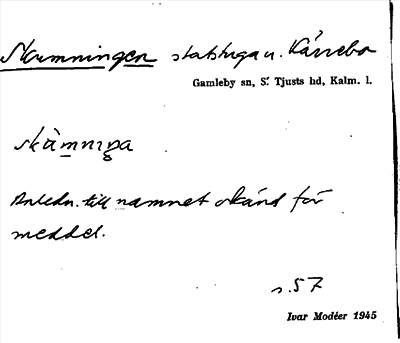 Skumningen statstuga u. Kärrebo
Gamleby sn, S. Tjusts hd, Kalm. l.
skùmnıŋa
Anledn. till namnet okänd för
meddel.
s. 57
Ivar Modéer 1945